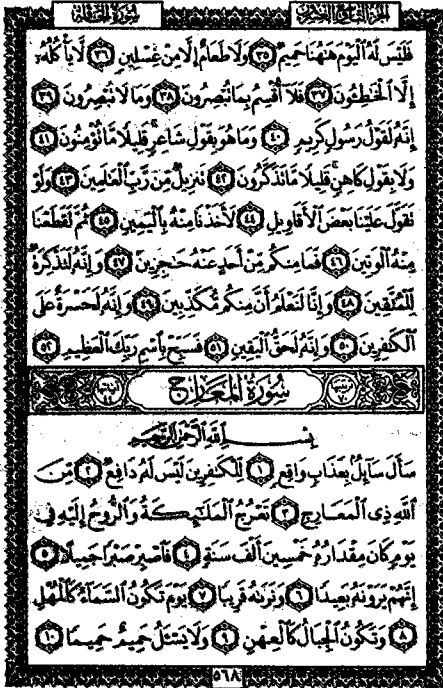 الجزء التاسع والعشرون سورة الحاقة
فَلَيْسَ لَهُ ٱلْيَوْمَ هَٰهُنَا حَمِيمٌ ﴿٣٥﴾ وَلَا طَعَامٌ إِلَّا مِنْ غِسْلِينٍ ﴿٣٦﴾ لَّا يَأْكُلُهُۥٓ
إِلَّا ٱلْخَٰطِـُٔونَ ﴿٣٧﴾ فَلَآ أُقْسِمُ بِمَا تُبْصِرُونَ ﴿٣٨﴾ وَمَا لَا تُبْصِرُونَ ﴿٣٩﴾
إِنَّهُۥ لَقَوْلُ رَسُولٍ كَرِيمٍ ﴿٤٠﴾ وَمَا هُوَ بِقَوْلِ شَاعِرٍ ۚ قَلِيلًا مَّا تُؤْمِنُونَ ﴿٤١﴾
وَلَا بِقَوْلِ كَاهِنٍ ۚ قَلِيلًا مَّا تَذَكَّرُونَ ﴿٤٢﴾ تَنزِيلٌ مِّن رَّبِّ ٱلْعَٰلَمِينَ ﴿٤٣﴾ وَلَوْ
تَقَوَّلَ عَلَيْنَا بَعْضَ ٱلْأَقَاوِيلِ ﴿٤٤﴾ لَأَخَذْنَا مِنْهُ بِٱلْيَمِينِ ﴿٤٥﴾ ثُمَّ لَقَطَعْنَا
مِنْهُ ٱلْوَتِينَ ﴿٤٦﴾ فَمَا مِنكُم مِّنْ أَحَدٍ عَنْهُ حَٰجِزِينَ ﴿٤٧﴾ وَإِنَّهُۥ لَتَذْكِرَةٌ
لِّلْمُتَّقِينَ ﴿٤٨﴾ وَإِنَّا لَنَعْلَمُ أَنَّ مِنكُم مُّكَذِّبِينَ ﴿٤٩﴾ وَإِنَّهُۥ لَحَسْرَةٌ عَلَى
ٱلْكَٰفِرِينَ ﴿٥٠﴾ وَإِنَّهُۥ لَحَقُّ ٱلْيَقِينِ ﴿٥١﴾ فَسَبِّحْ بِٱسْمِ رَبِّكَ ٱلْعَظِيمِ ﴿٥٢﴾
سُورَةُ المَعَارِجِ
بِسْمِ ٱللَّهِ ٱلرَّحْمَٰنِ ٱلرَّحِيمِ
سَأَلَ سَآئِلٌۢ بِعَذَابٍ وَاقِعٍ ﴿١﴾ لِّلْكَٰفِرِينَ لَيْسَ لَهُۥ دَافِعٌ ﴿٢﴾ مِّنَ
ٱللَّهِ ذِى ٱلْمَعَارِجِ ﴿٣﴾ تَعْرُجُ ٱلْمَلَٰٓئِكَةُ وَٱلرُّوحُ إِلَيْهِ فِى
يَوْمٍ كَانَ مِقْدَارُهُۥ خَمْسِينَ أَلْفَ سَنَةٍ ﴿٤﴾ فَٱصْبِرْ صَبْرًا جَمِيلًا ﴿٥﴾
إِنَّهُمْ يَرَوْنَهُۥ بَعِيدًا ﴿٦﴾ وَنَرَىٰهُ قَرِيبًا ﴿٧﴾ يَوْمَ تَكُونُ ٱلسَّمَآءُ كَٱلْمُهْلِ
﴿٨﴾ وَتَكُونُ ٱلْجِبَالُ كَٱلْعِهْنِ ﴿٩﴾ وَلَا يَسْـَٔلُ حَمِيمٌ حَمِيمًا ﴿١٠﴾
٥٦٨